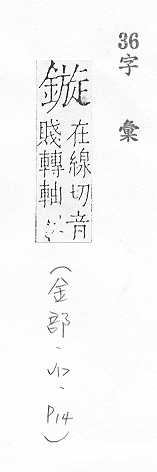 36
字彙
鏇
在線切音
賤轉軸
(金部、P14)